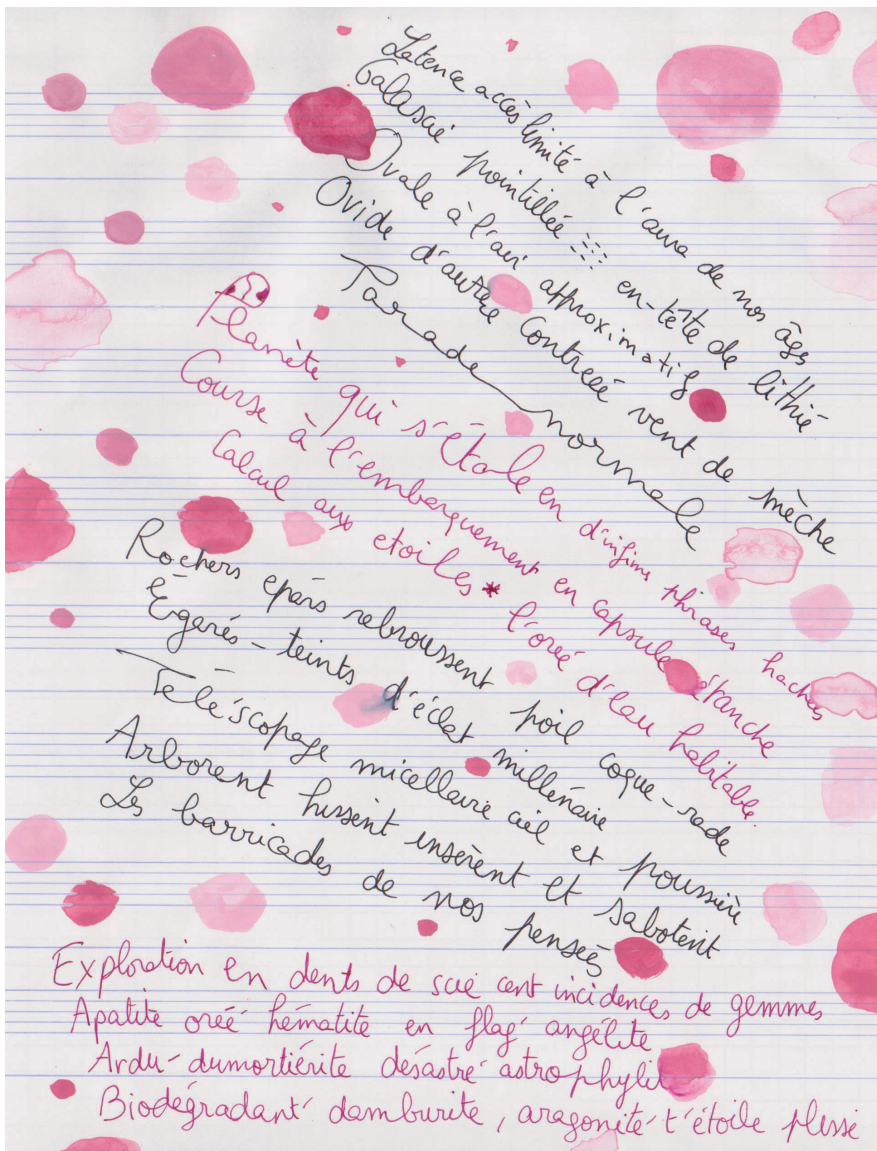 Latence accès limité à l'aura de nos âges
pointillée en-tête de lithié
Ovale à l'avi approximatif
Ovide d'autre Contreé vent de mèche
Parade normale
Planète qui s'étale en d'infims phrases hachées
Course à l'embarquement en capsule étanche
Calcul aux etoiles * l'oreé d'eau habitable
Rochers epars rebroussent poil coque-rade
Égarés-teints d'éclat millénaire
Téléscopage micellaire ciel et poussière
Arborent hissent insèrent et sabotent
Les barricades de nos penseés
Exploration en dents de scie cent incidences de gemmes
Apatite oreé hématite en flag' angélite
Ardu-dumortiérite désastre' astrophylit
Biodégradant' damburite, aragonite' t'étoile plisse